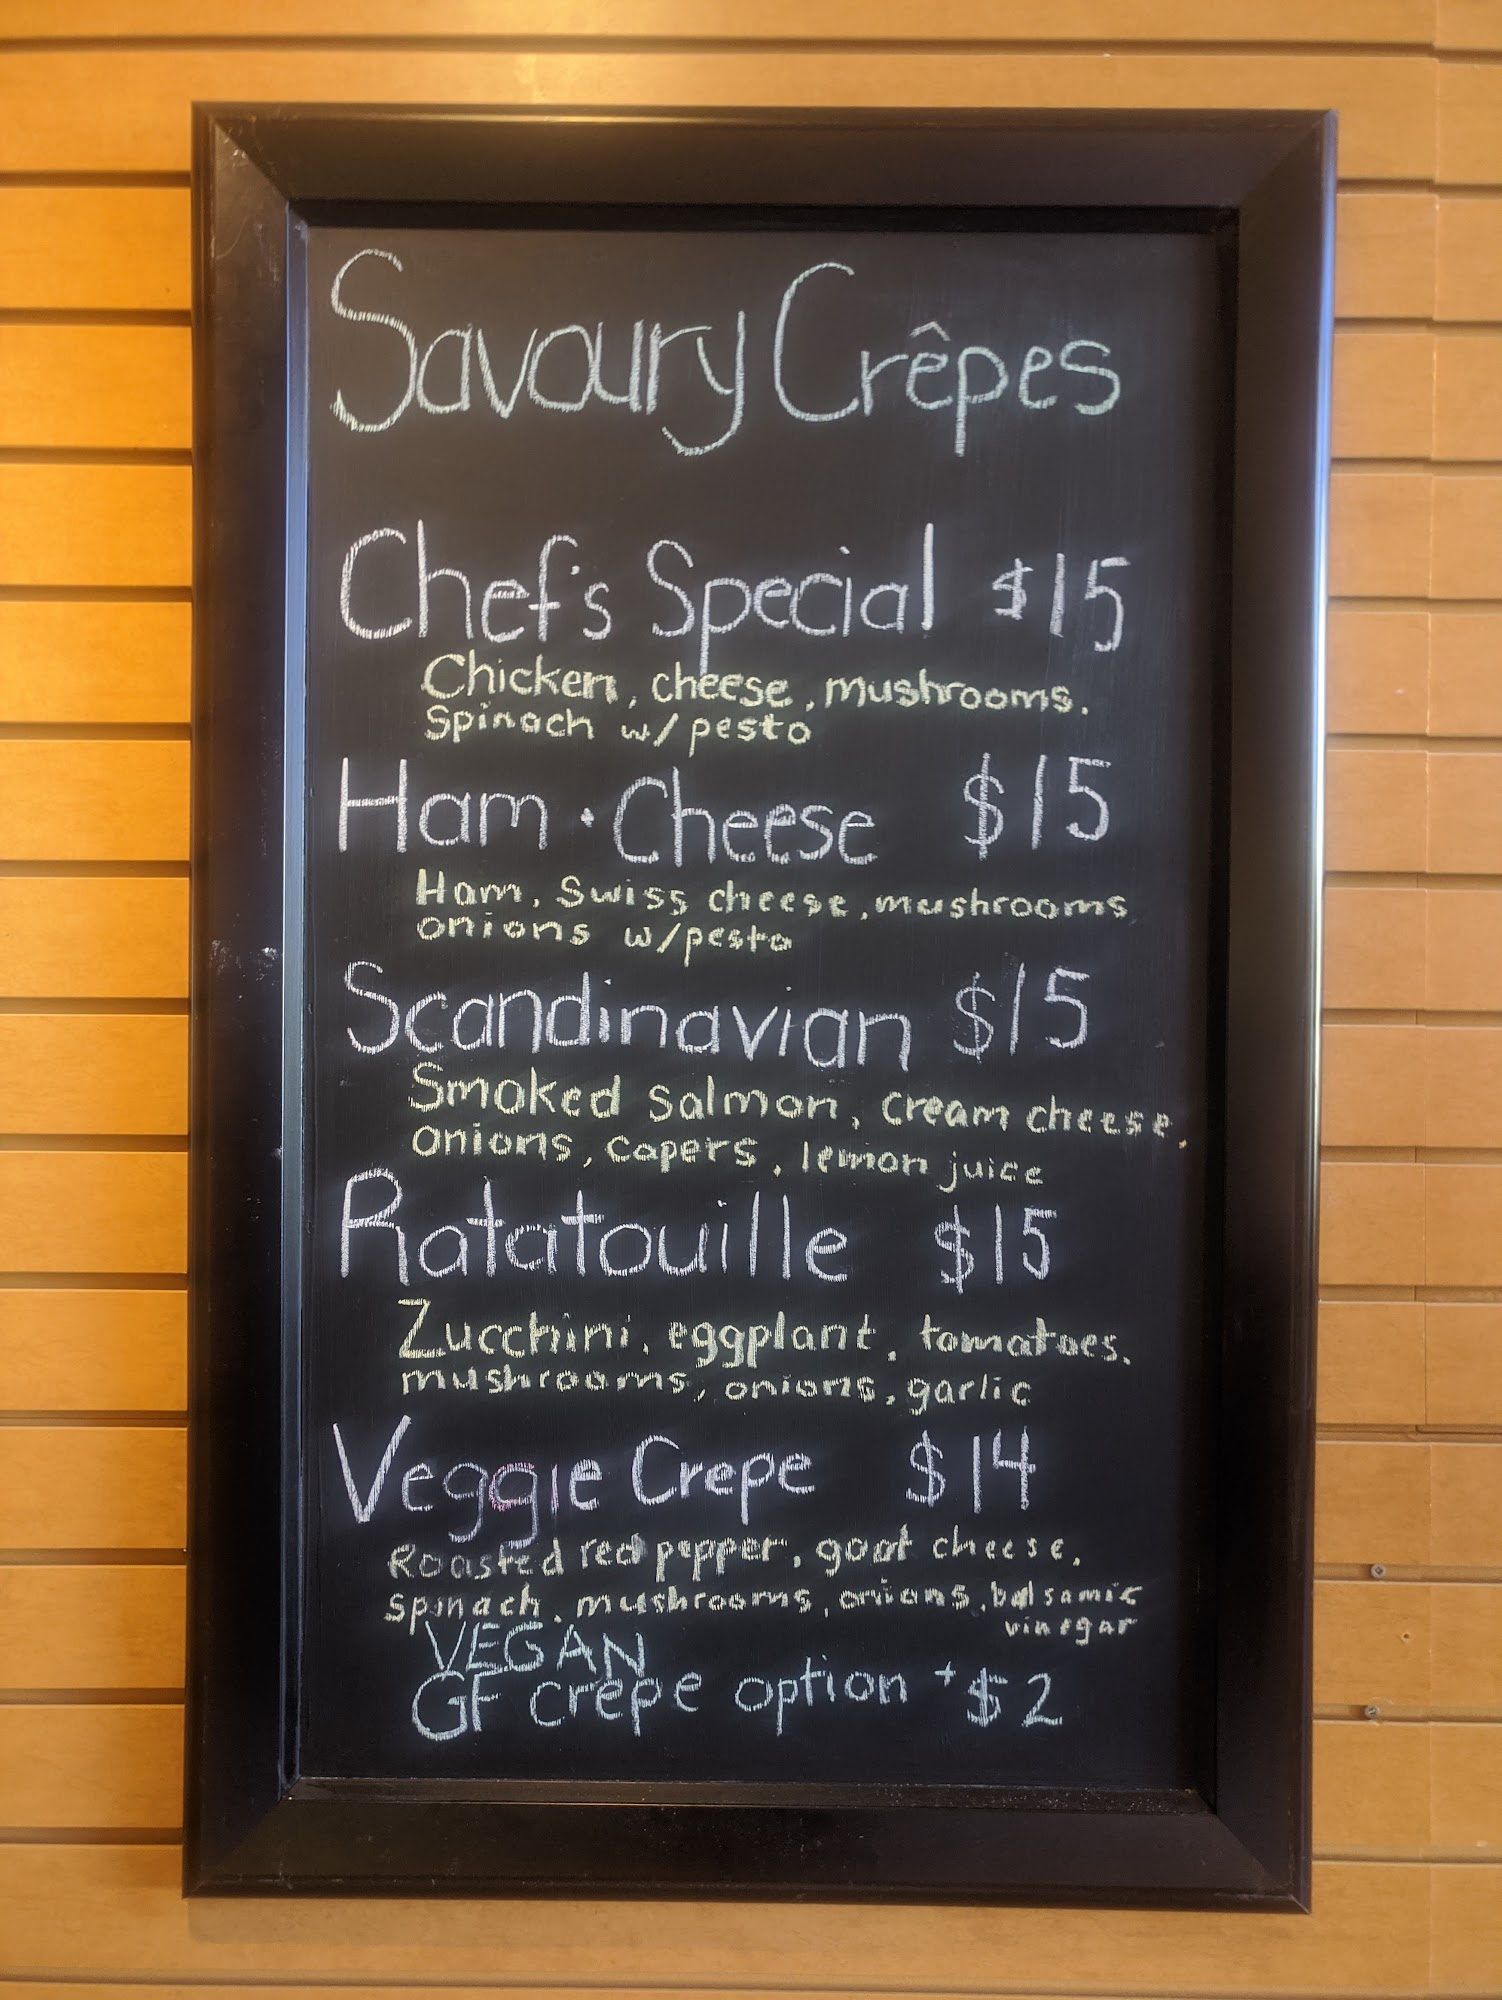 Savoury Crêpes
Chef's Special $15
Chicken, cheese, mushrooms.
Spinach w/pesto
Ham · Cheese $15
Ham, Swiss cheese, mushrooms
onions w/pesto
Scandinavian $15
Smoked salmon, cream cheese,
onions, capers, lemon juice
Ratatouille $15
Zucchini, eggplant, tomatoes.
mushrooms, onions, garlic
Veggie Crepe $14
Roasted red pepper, goat cheese,
spinach, mushrooms, onions, balsamic
vinegar
VEGAN
GF crêpe option +$2